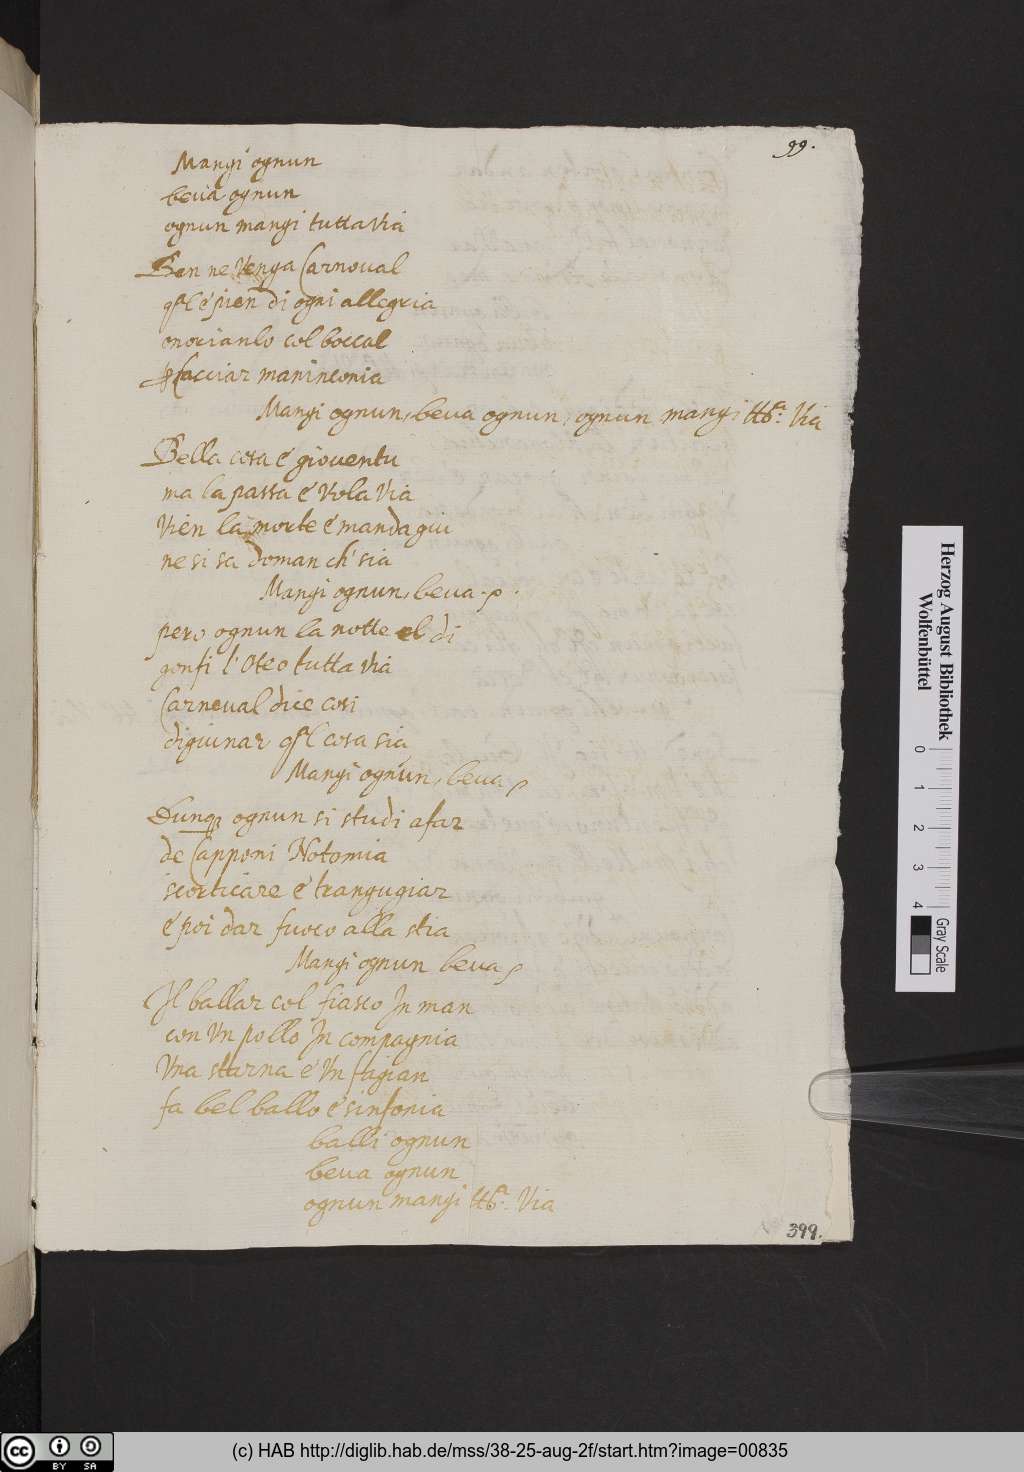 99.
Mangi ognun
beua ognun
ognun mangi tuttavia
Ben ne venga Carnoual
é pien di ogni allegria
onorianlo col boccal
cacciar maninconia
Mangi ognun, beua ognun, ognun mangi ttª: Via
Bella cosa é gioventu
ma la passa é vola via
vien la morte é manda giu
ne si sa doman ch' sia
Mangi ognun, beua
pero ognun la notte el di
gonfi l'Oteo tutta via
Carneual dice cosi
digiunar cosa sia
Mangi ognun, beua
Dunq ognun si studi a far
de Capponi Notomia
scorticare é trangugiar
é poi dar fuoco alla stia
Mangi ognun beua
Il ballar col fiasco In man
con Vn pollo In compagnia
Vna starna é Vn fagian
fa bel ballo é sinfonia
balli ognun
beua ognun
ognun mangi ttª: Via
399.
Herzog August Bibliothek
Wolfenbüttel
0 1 2 3 4
Gray Scale
cc BY SA
(c) HAB http://diglib.hab.de/mss/38-25-aug-2f/start.htm?image=00835